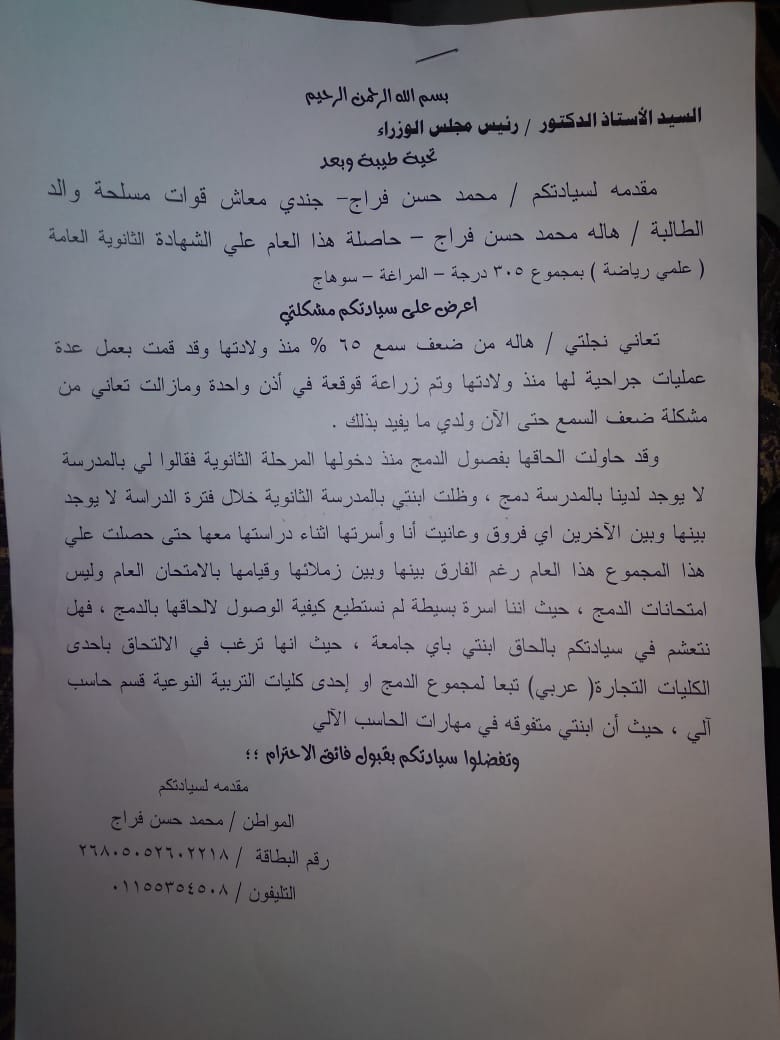 بسم الله الرحمن الرحيم
السيد الأستاذ الدكتور / رئيس مجلس الوزراء
تحية طيبة وبعد
مقدمه لسيادتكم / محمد حسن فراج- جندي معاش قوات مسلحة والد
الطالبة / هاله محمد حسن فراج - حاصلة هذا العام علي الشهادة الثانوية العامة
( علمي رياضة ) بمجموع ٣٠٥ درجة - المراغة - سوهاج
اعرض على سيادتكم مشكلتي
تعاني نجلتي / هاله من ضعف سمع ٦٥ % منذ ولادتها وقد قمت بعمل عدة
عمليات جراحية لها منذ ولادتها وتم زراعة قوقعة في أذن واحدة ومازالت تعاني من
مشكلة ضعف السمع حتى الآن ولدي ما يفيد بذلك .
وقد حاولت الحاقها بفصول الدمج منذ دخولها المرحلة الثانوية فقالوا لي بالمدرسة
لا يوجد لدينا بالمدرسة دمج ، وظلت ابنتي بالمدرسة الثانوية خلال فترة الدراسة لا يوجد
بينها وبين الآخرين اي فروق وعانيت أنا وأسرتها اثناء دراستها معها حتى حصلت علي
هذا المجموع هذا العام رغم الفارق بينها وبين زملائها وقيامها بالامتحان العام وليس
امتحانات الدمج ، حيث اننا اسرة بسيطة لم نستطيع كيفية الوصول لالحاقها بالدمج ، فهل
نتعشم في سيادتكم بالحاق ابنتي باي جامعة ، حيث انها ترغب في الالتحاق باحدى
الكليات التجارة( عربي) تبعا لمجموع الدمج او إحدى كليات التربية النوعية قسم حاسب
آلي ، حيث أن ابنتي متفوقه في مهارات الحاسب الآلي
وتفضلوا سيادتكم بقبول فائق الاحترام ؛؛
مقدمه لسيادتكم
المواطن / محمد حسن فراج
رقم البطاقة / ٢٦٨٠٥٠٥٢٦٠٢٢١٨
التليفون / ٠١١٥٥٣٥٤٥٠٨